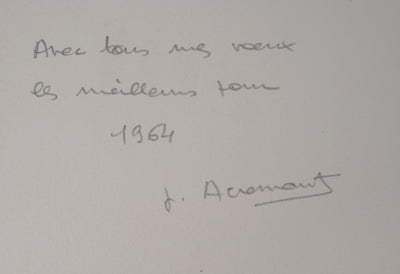 Avec tous mes voeux
les meilleurs pour
1964
J. Acremant